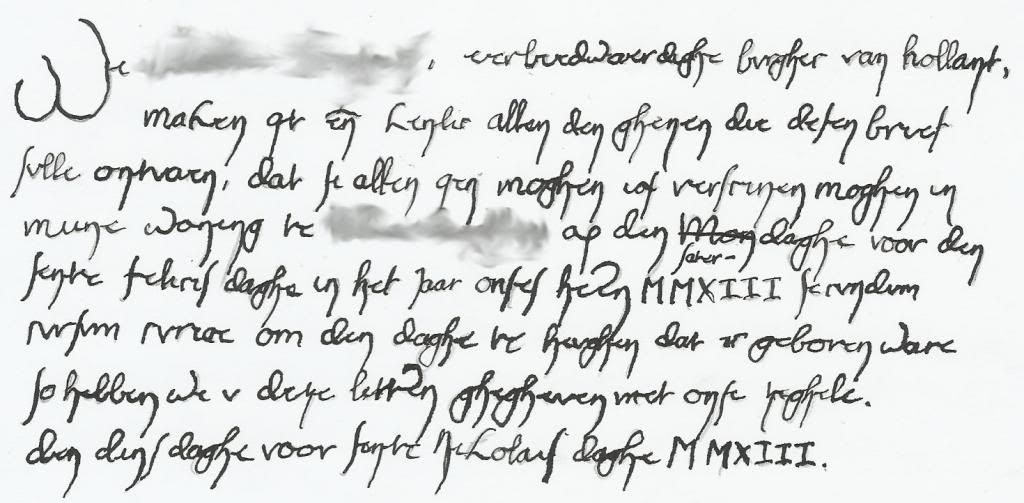 We , eerberdwaerdeghe burgher van hollant,
maken qt en kenlic allen den ghenen die desen brief
sulle ontvaen, dat se allen moghen verscinen moghen in
mune woneng te op den Mon sater- daghe voor den
sente felicis daghe in het Jaar onses heren MMXIII secundum
cursum curiae om den daghe te heughen dat ic geboren ware
so hebben we v dese letteren ghegheven met onse seghele.
den dinsdaghe voor sente Nicholais daghe MMXIII.